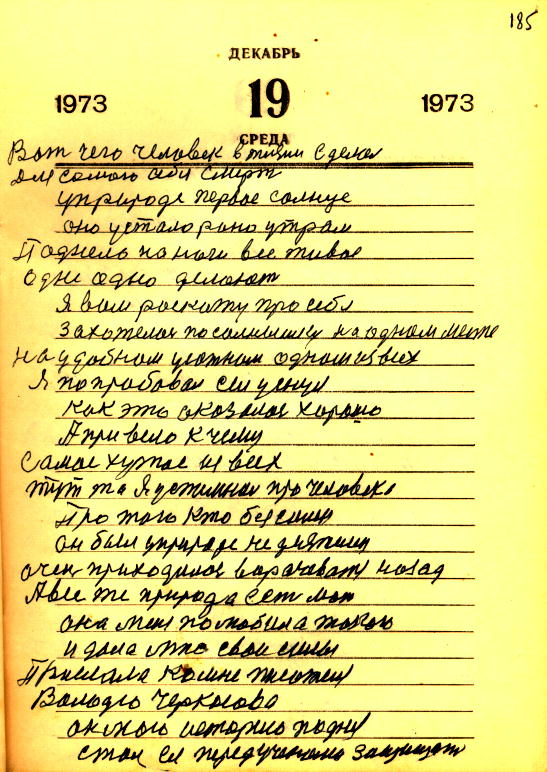 185
ДЕКАБРЬ
1973 19 1973
СРЕДА
Вот чего человек в жизни сделал
для самого себя смерт
уприроде первое солнце
оно устало рано утрам
Поднело на ноги все живое
одне одно делают
Я вам роскожу про себя
Захотелос посолнышку на одном месте
на удобном уютном одном из всех
Я попробовал сел уснул
как это оказалос хорошо
А привело к чему
Самое хужое из всех
тут та Я успомнил про человека
Про того кто
он был уприроде не
очен приходилос ворачиват назад
А все же природа ест мат
она мене полюбила такою
и дала мне свои силы
Прислала комне писателя
Володю Черкасова
он мою историю поднял
стал ея передучеными защищат